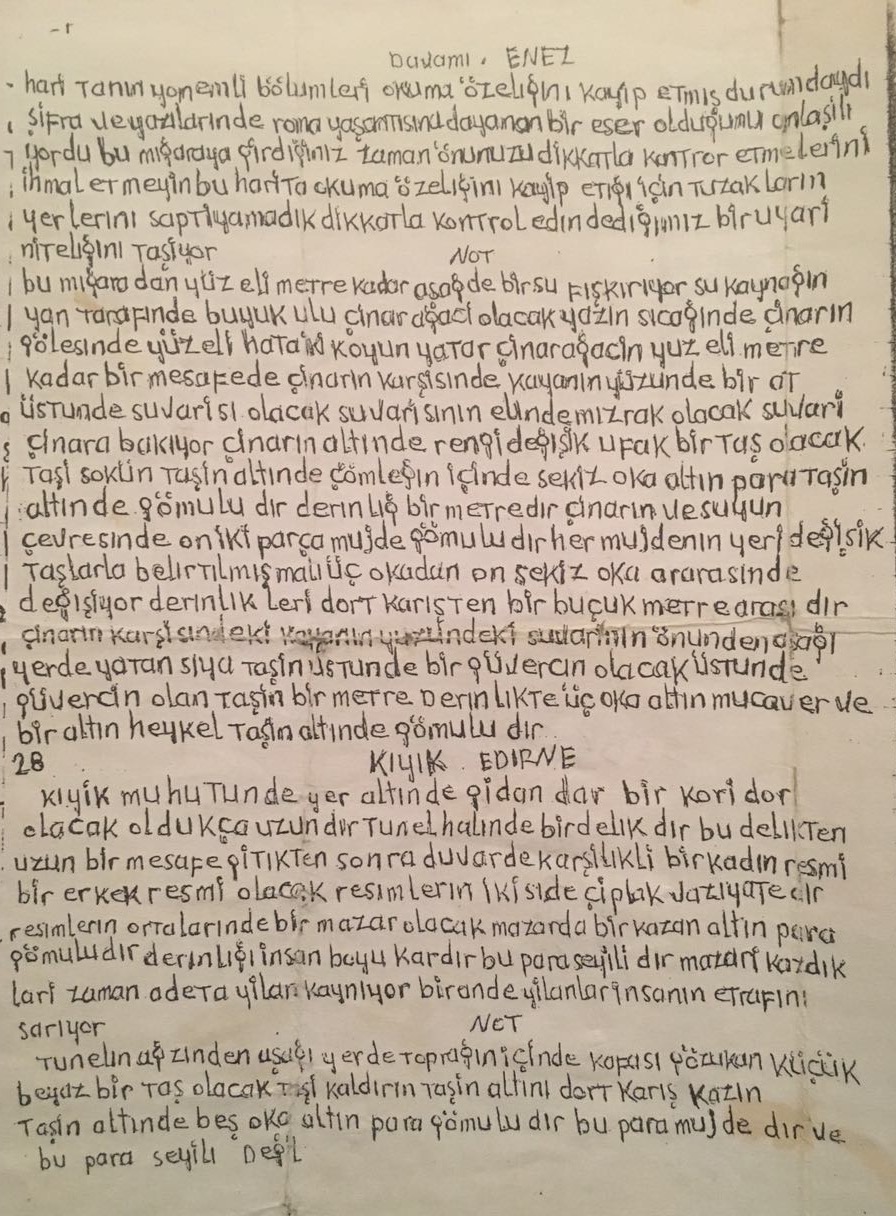 Davamı . ENEZ
haritanın yonemli bölümleri okuma özeliğini kayip etmiş durumdaydı
şifra ve yazılarinde roma yaşantısına dayanan bir eser olduğunu anlaşili
yordu bu miğaraya girdiğiniz zaman önunuzu dikkatla kontror etmelerini
ihmal etmeyin bu harita okuma özeliğini kayip etiği için tuzakların
yerlerini saptiyamadık dikkatla kontrol edin dediğimiz bir uyari
niteliğini taşiyor NOT
bu miğaradan yüz eli metre kadar aşağde bir su fişkiriyor su kaynağın
yan tarafinde buyuk ulu çinar ağaci olacak yazin sicağinde çinarın
gölesinde yüz eli hata iki koyun yatar çinar ağacin yuz eli metre
kadar bir mesafede çinarın karşisinde kayanın yüzunde bir at
üstunde suvarisi olacak suvarisinin elinde mizrak olacak suvari
çinara bakıyor çinarın altinde rengi değişik ufak bir taş olacak
taşi sokün taşin altinde çömleğin içinde sekiz oka altın para taşin
altinde gömulu dir derinliğ bir metredir çinarın ve suyun
çevresinde on iki parça mujde gömulu dir her mujdenin yeri değişik
taşlarla belirtilmiş mali üç okadan on sekiz oka ararasinde
değişiyor derinlikleri dort karişten bir buçuk metre arasi dir
çinarın karşisindeki kayanın yuzündeki suvarinin önunden aşaği
yerde yatan siya taşin üstunde bir güvercin olacak üstunde
güvercin olan taşin bir metre derinlikte üç oka altın mucaver ve
bir altın heykel taşin altinde gömulu dir
28 KIYIK . EDIRNE
kıyik muhutunde yer altinde gidan dar bir koridor
olacak oldukça uzun dir tunel halinde bir delik dir bu delikten
uzun bir mesafe gitikten sonra duvarde karşilikli bir kadın resmi
bir erkek resmi olacak resimlerin iki side çiplak vaziyatedir
resimlerin ortalarinde bir mazar olacak mazarda bir kazan altın para
gömulu dir derinliği insan boyu kardir bu para seyili dir mazari kazdik
lari zaman adeta yilan kayniyor bir ande yilanlar insanin etrafıni
sarıyor NOT
tunelin ağzinden aşaği yerde toprağın içinde kafasi gözukan küçük
beyaz bir taş olacak taşi kaldirın taşin altini dort kariş kazin
taşin altinde beş oka altın para gömulu dir bu para mujde dir ve
bu para seyili değil